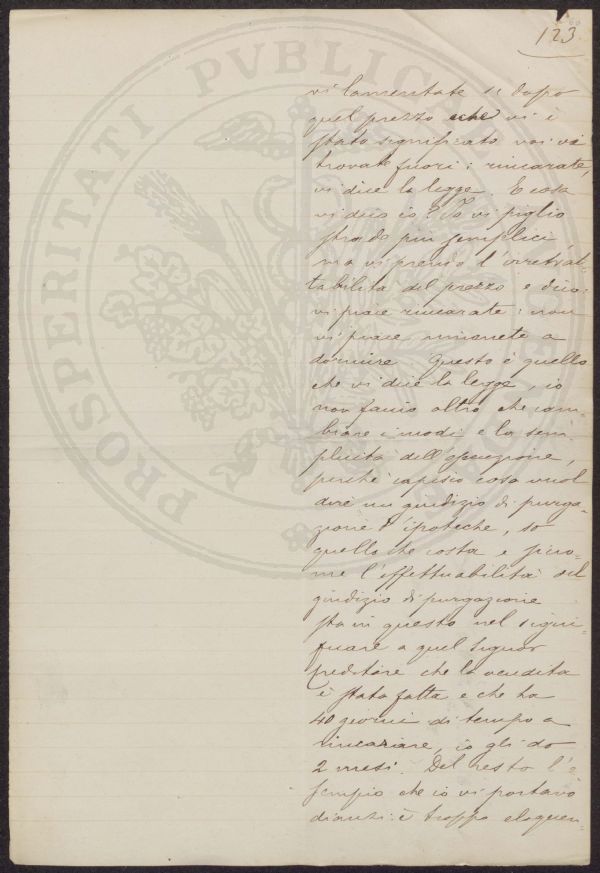 123
vi lamentate se dopo
quel prezzo che vi è
stato significato voi vi
trovate fuori: rincarate,
vi dice la legge. E cosa
vi dico io? Io vi piglio
strade più semplici,
ma vi prendo l'irretrat-
tabilità del prezzo e dico:
vi piace rincarate: non
vi piace, mionete a
dormire. Questo è quello
che vi dice la legge, io
non faccio altro che cam-
biare i modi e la sem-
plicità dell'operazione,
perché capisco cosa vuol
dire un giudizio di purga-
zione d'ipoteche, so
quello che costa e sicco-
me l'effettuabilità del
giudizio di purgazione
sta in questo nel signi-
ficare a quel Signor
creditore che la vendita
è stata fatta e che ha
40 giorni di tempo a
rincarare, io gli do
2 mesi. Del resto l'e-
sempio che io vi portavo
dianzi è troppo eloquen-
PROSPERITATI PVBLICAE